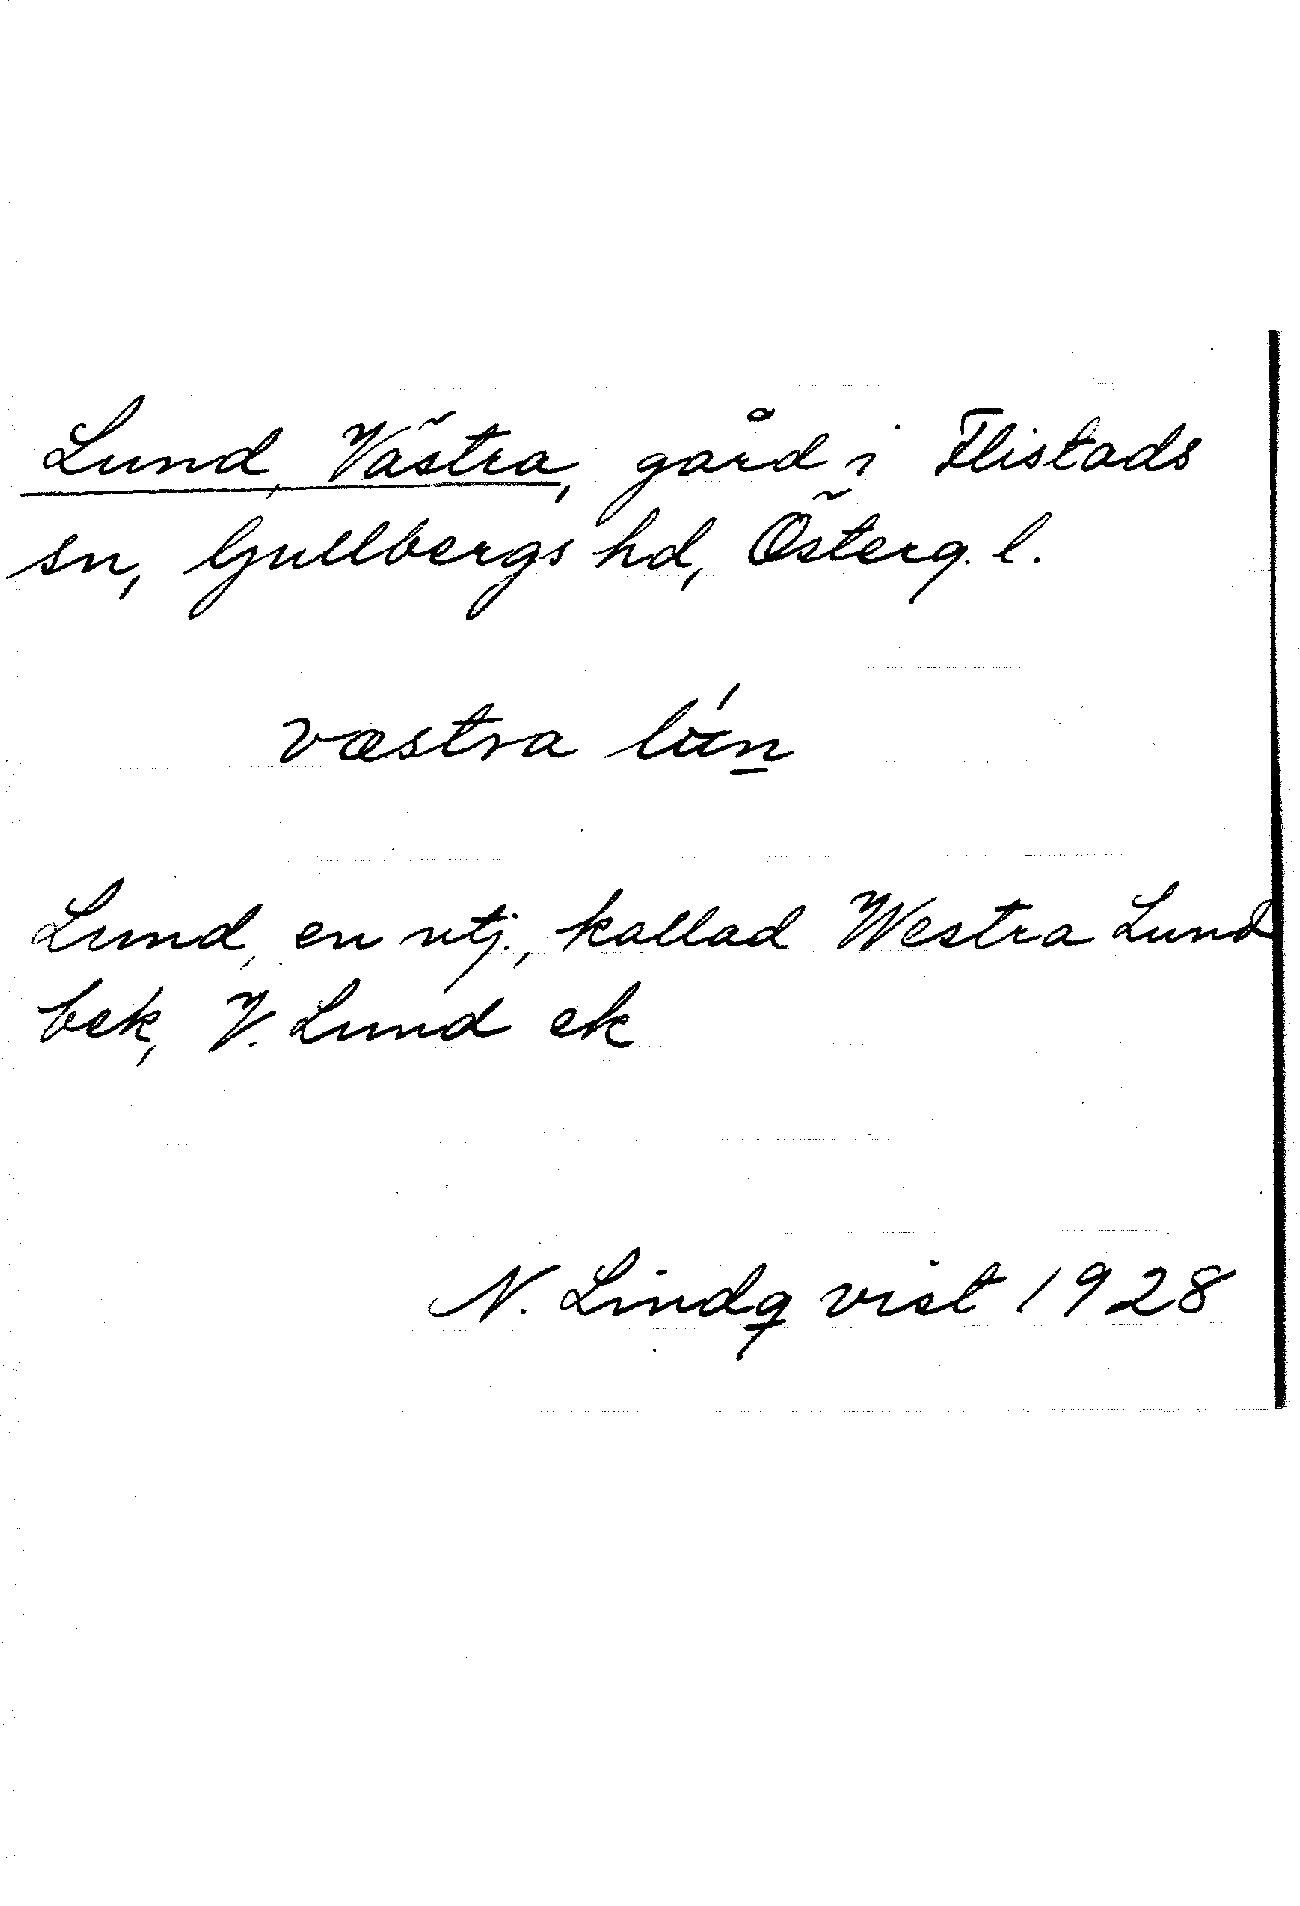 Lund, Västra, gård i Flistads
sn, Gullbergs hd, Österg. l.
væstra lún
Lund, en utj., kallad Westra Lund
bek, V. Lund ek
N. Lindqvist 1928